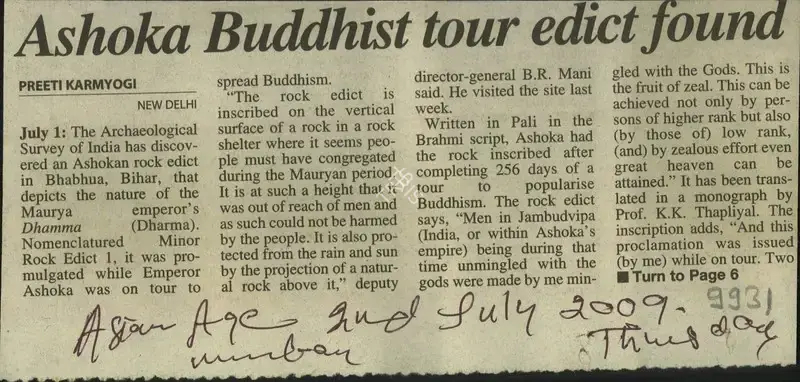 Ashoka Buddhist tour edict found
PREETI KARMYOGI
NEW DELHI
July 1: The Archaeological
Survey of India has discov-
ered an Ashokan rock edict
in Bhabhua, Bihar, that
depicts the nature of the
Maurya emperor's
Dhamma (Dharma).
Nomenclatured Minor
Rock Edict 1, it was pro-
mulgated while Emperor
Ashoka was on tour to
spread Buddhism.
"The rock edict is
inscribed on the vertical
surface of a rock in a rock
shelter where it seems peo-
ple must have congregated
during the Mauryan period.
It is at such a height that it
was out of reach of men and
as such could not be harmed
by the people. It is also pro-
tected from the rain and sun
by the projection of a natur-
al rock above it," deputy
director-general B.R. Mani
said. He visited the site last
week.
Written in Pali in the
Brahmi script, Ashoka had
the rock inscribed after
completing 256 days of a
tour to popularise
Buddhism. The rock edict
says, "Men in Jambudvipa
(India, or within Ashoka's
empire) being during that
time unmingled with the
gods were made by me min-
gled with the Gods. This is
the fruit of zeal. This can be
achieved not only by per-
sons of higher rank but also
(by those of) low rank,
(and) by zealous effort even
great heaven can be
attained." It has been trans-
lated in a monograph by
Prof. K.K. Thapliyal. The
inscription adds, "And this
proclamation was issued
(by me) while on tour. Two
■ Turn to Page 6
9931
Asian Age 2nd July 2009.
Mumbai Thursday